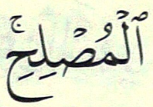 ٱلۡمُصۡلِحِۚ